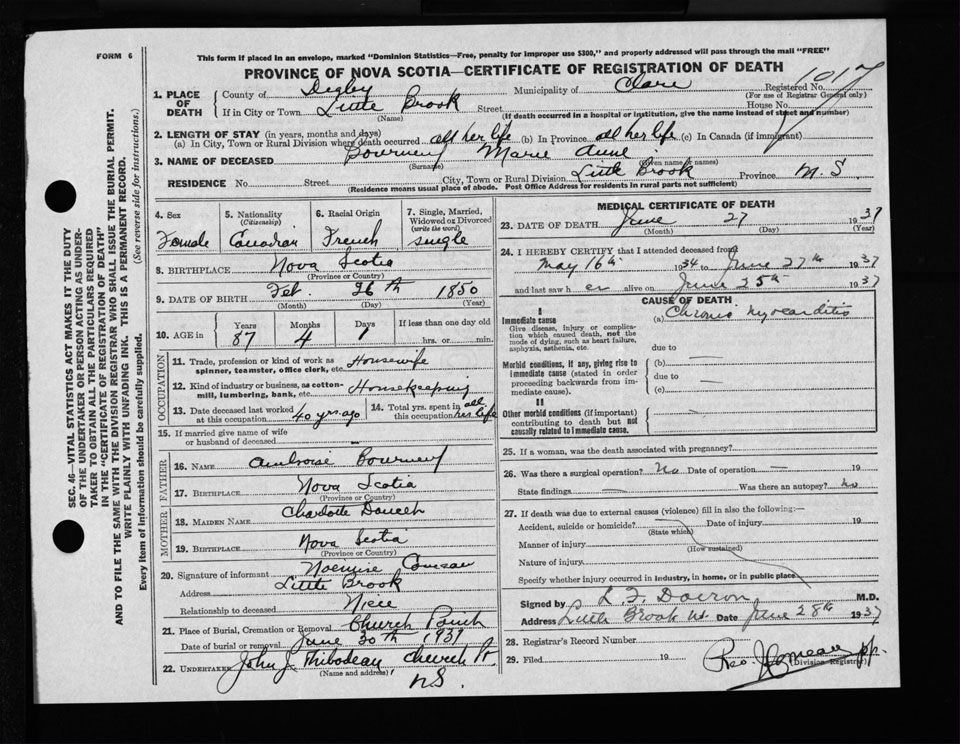 FORM 6
This form if placed in an envelope, marked "Dominion Statistics—Free, penalty for improper use $300," and properly addressed will pass through the mail "FREE"
PROVINCE OF NOVA SCOTIA—CERTIFICATE OF REGISTRATION OF DEATH
1017
1. PLACE OF DEATH
County of Digby Municipality of Clare Registered No.
(For use of Registrar General only)
If in City or Town Little Brook Street House No.
(Name) (If death occurred in a hospital or institution, give the name instead of street and number)
2. LENGTH OF STAY (in years, months and days)
(a) In City, Town or Rural Division where death occurred all her life (b) In Province all her life (c) In Canada (if immigrant)
3. NAME OF DECEASED Marie Anne
(Surname) (Given name or names)
RESIDENCE No. Street City, Town or Rural Division Little Brook Province N.S.
(Residence means usual place of abode. Post Office Address for residents in rural parts not sufficient)
4. Sex Female
5. Nationality (Citizenship) Canadian
6. Racial Origin French
7. Single, Married, Widowed or Divorced (write the word) single
8. BIRTHPLACE Nova Scotia
(Province or Country)
9. DATE OF BIRTH Feb. 26th 1850
(Month) (Day) (Year)
10. AGE in Years 87 Months 4 Days 1 If less than one day old
hrs. or min.
OCCUPATION
11. Trade, profession or kind of work as spinner, teamster, office clerk, etc. Housewife
12. Kind of industry or business, as cotton-mill, lumbering, bank, etc. Homekeeping
13. Date deceased last worked at this occupation 40 yrs. ago
14. Total yrs. spent in this occupation all her life
15. If married give name of wife or husband of deceased —
FATHER
16. NAME Ambroise
17. BIRTHPLACE Nova Scotia
(Province or Country)
MOTHER
18. MAIDEN NAME Charlotte Doucet
19. BIRTHPLACE Nova Scotia
(Province or Country)
20. Signature of informant Comeau
Address Little Brook
Relationship to deceased Niece
21. Place of Burial, Cremation or Removal Church Point
Date of burial or removal June 30th 1937
22. UNDERTAKER John J. Thibodeau Church Pt
(Name and address)
N.S.
MEDICAL CERTIFICATE OF DEATH
23. DATE OF DEATH June 27 1937
(Month) (Day) (Year)
24. I HEREBY CERTIFY that I attended deceased from
May 16th 1934 to June 27th 1937
and last saw her alive on June 25th 1937
CAUSE OF DEATH
I
Immediate cause (a) Chronic myocarditis
Give disease, injury or complication which caused death, not the mode of dying, such as heart failure, asphyxia, asthenia, etc.
due to
Morbid conditions, if any, giving rise to immediate cause (stated in order proceeding backwards from immediate cause).
(b) —
due to —
(c)
II
Other morbid conditions (if important) contributing to death but not causally related to immediate cause.
—
25. If a woman, was the death associated with pregnancy?
26. Was there a surgical operation? No Date of operation — 19
State findings — Was there an autopsy? No
27. If death was due to external causes (violence) fill in also the following:—
Accident, suicide or homicide? Date of injury 19
(State which)
Manner of injury
(How sustained)
Nature of injury
Specify whether injury occurred in industry, in home, or in public place
Signed by L. F. Doiron M.D.
Address Little Brook N.S. Date June 28th 1937
28. Registrar's Record Number
29. Filed 19 Rev. J. Comeau pp.
(Division Registrar)
SEC. 46—VITAL STATISTICS ACT MAKES IT THE DUTY
OF THE UNDERTAKER OR PERSON ACTING AS UNDER-
TAKER TO OBTAIN ALL THE PARTICULARS REQUIRED
IN THE "CERTIFICATE OF REGISTRATION OF DEATH"
AND TO FILE THE SAME WITH THE DIVISION REGISTRAR WHO SHALL ISSUE THE BURIAL PERMIT.
WRITE PLAINLY WITH UNFADING INK. THIS IS A PERMANENT RECORD.
Every item of information should be carefully supplied. (See reverse side for instructions.)